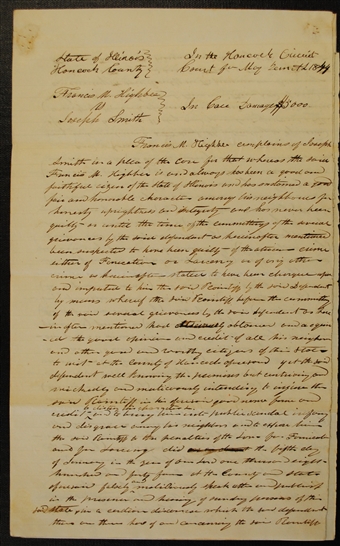 State of Illinois
Hancock County
In the Hancock Circuit
Court for May Term A.D. 1844
Francis M. Higbee
vs
Joseph Smith
In Case Damage $5000.
Francis M. Higbee complains of Joseph
Smith in a plea of the case for that whereas the said
Francis M. Higbee is and always has been a good and
faithful citizen of the State of Illinois and has sustained a good
fair and honorable character among his neighbors for
honesty uprightness and integrity and has never been
guilty or until the time of the committing of the several
grievances by the said defendant as hereinafter mentioned
been suspected to have been guilty of the crime
either of Fornication or Larceny or of any other
crime as hereinafter stated to have been charged upon
and imputed to him the said Plaintiff by the said Defendant
by means whereof the said Plaintiff before the committing
of the said several grievances by the said defendant as here
in after mentioned had obtained and acquired
the good opinion and credit of all his neighbors
and other good and worthy citizens of this State
to wit at the County of Hancock aforesaid yet the said
dependent well knowing the premises but contriving and
wickedly and maliciously intending to injure the
said Plaintiff in his good name fame and
credit and to bring him into public scandal infamy
and disgrace among his neighbors and to expose him
the said Plaintiff to the penalties of the Laws for
and for Larceny did the fifth day
of January in the year of our Lord one thousand eight
hundred and forty four at the County and State
aforesaid falsely maliciously speak utter and publish
in the presence and hearing of sundry persons of the
said State, in a certain discourse which the said defendant
then and there had of and concerning the said Plaintiff